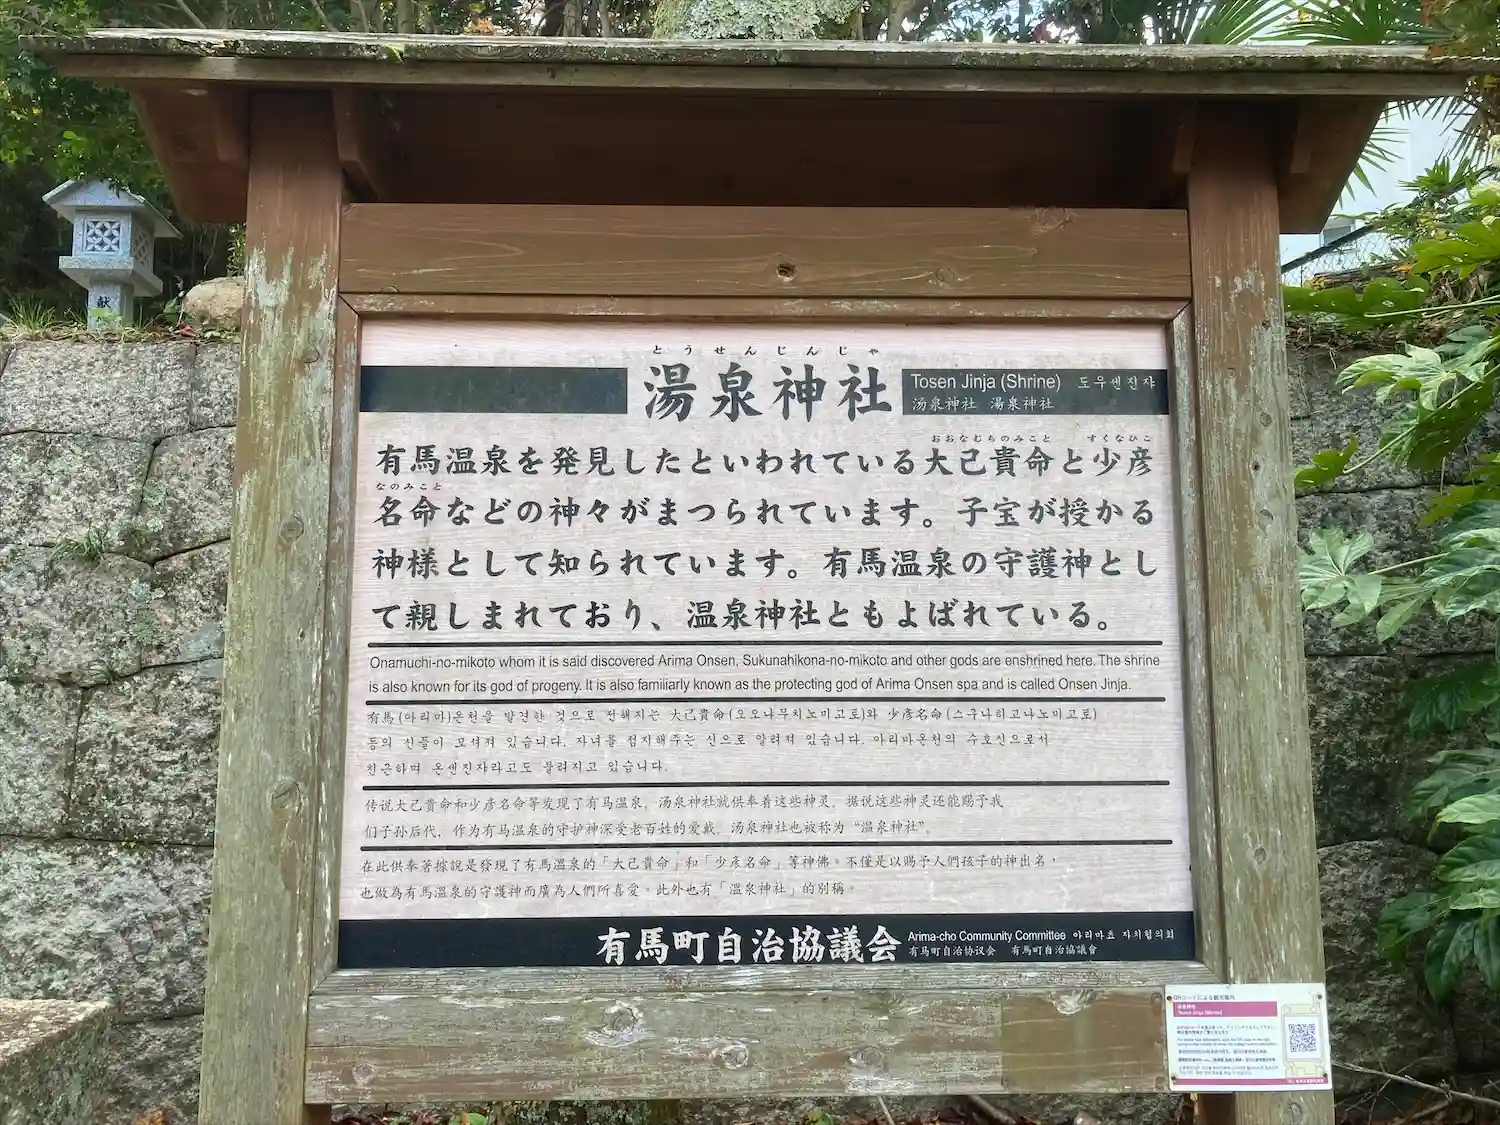 献
とうせんじんじゃ
湯泉神社
Tosen Jinja (Shrine) 도우센진쟈
汤泉神社 湯泉神社
おおなむちのみこと すくなひこ
有馬温泉を発見したといわれている大己貴命と少彦
なのみこと
名命などの神々がまつられています。子宝が授かる
神様として知られています。有馬温泉の守護神とし
て親しまれており、温泉神社ともよばれている。
Onamuchi-no-mikoto whom it is said discovered Arima Onsen, Sukunahikona-no-mikoto and other gods are enshrined here. The shrine
is also known for its god of progeny. It is also familiarly known as the protecting god of Arima Onsen spa and is called Onsen Jinja.
有馬(아리마)온천을 발견한 것으로 전해지는 大己貴命(오오나무치노미고토)와 少彦名命(스구나히고나노미고토)
등의 신들이 모셔져 있습니다. 자녀를 점지해주는 신으로 알려져 있습니다. 아리마온천의 수호신으로서
친근하며 온센진쟈라고도 불려지고 있습니다.
传说大己贵命和少彦名命等发现了有马温泉，汤泉神社就供奉着这些神灵，据说这些神灵还能赐予我
们子孙后代，作为有马温泉的守护神深受老百姓的爱戴，汤泉神社也被称为“温泉神社”。
在此供奉著據說是發現了有馬溫泉的「大己貴命」和「少彥名命」等神佛。不僅是以賜予人們孩子的神出名，
也做為有馬溫泉的守護神而廣為人們所喜愛。此外也有「溫泉神社」的別稱。
有馬町自治協議会
Arima-cho Community Committee 아리마쵸 자치협의회
有马町自治协议会 有馬町自治協議會
QRコードによる観光案内
湯泉神社
Tosen Jinja (Shrine)